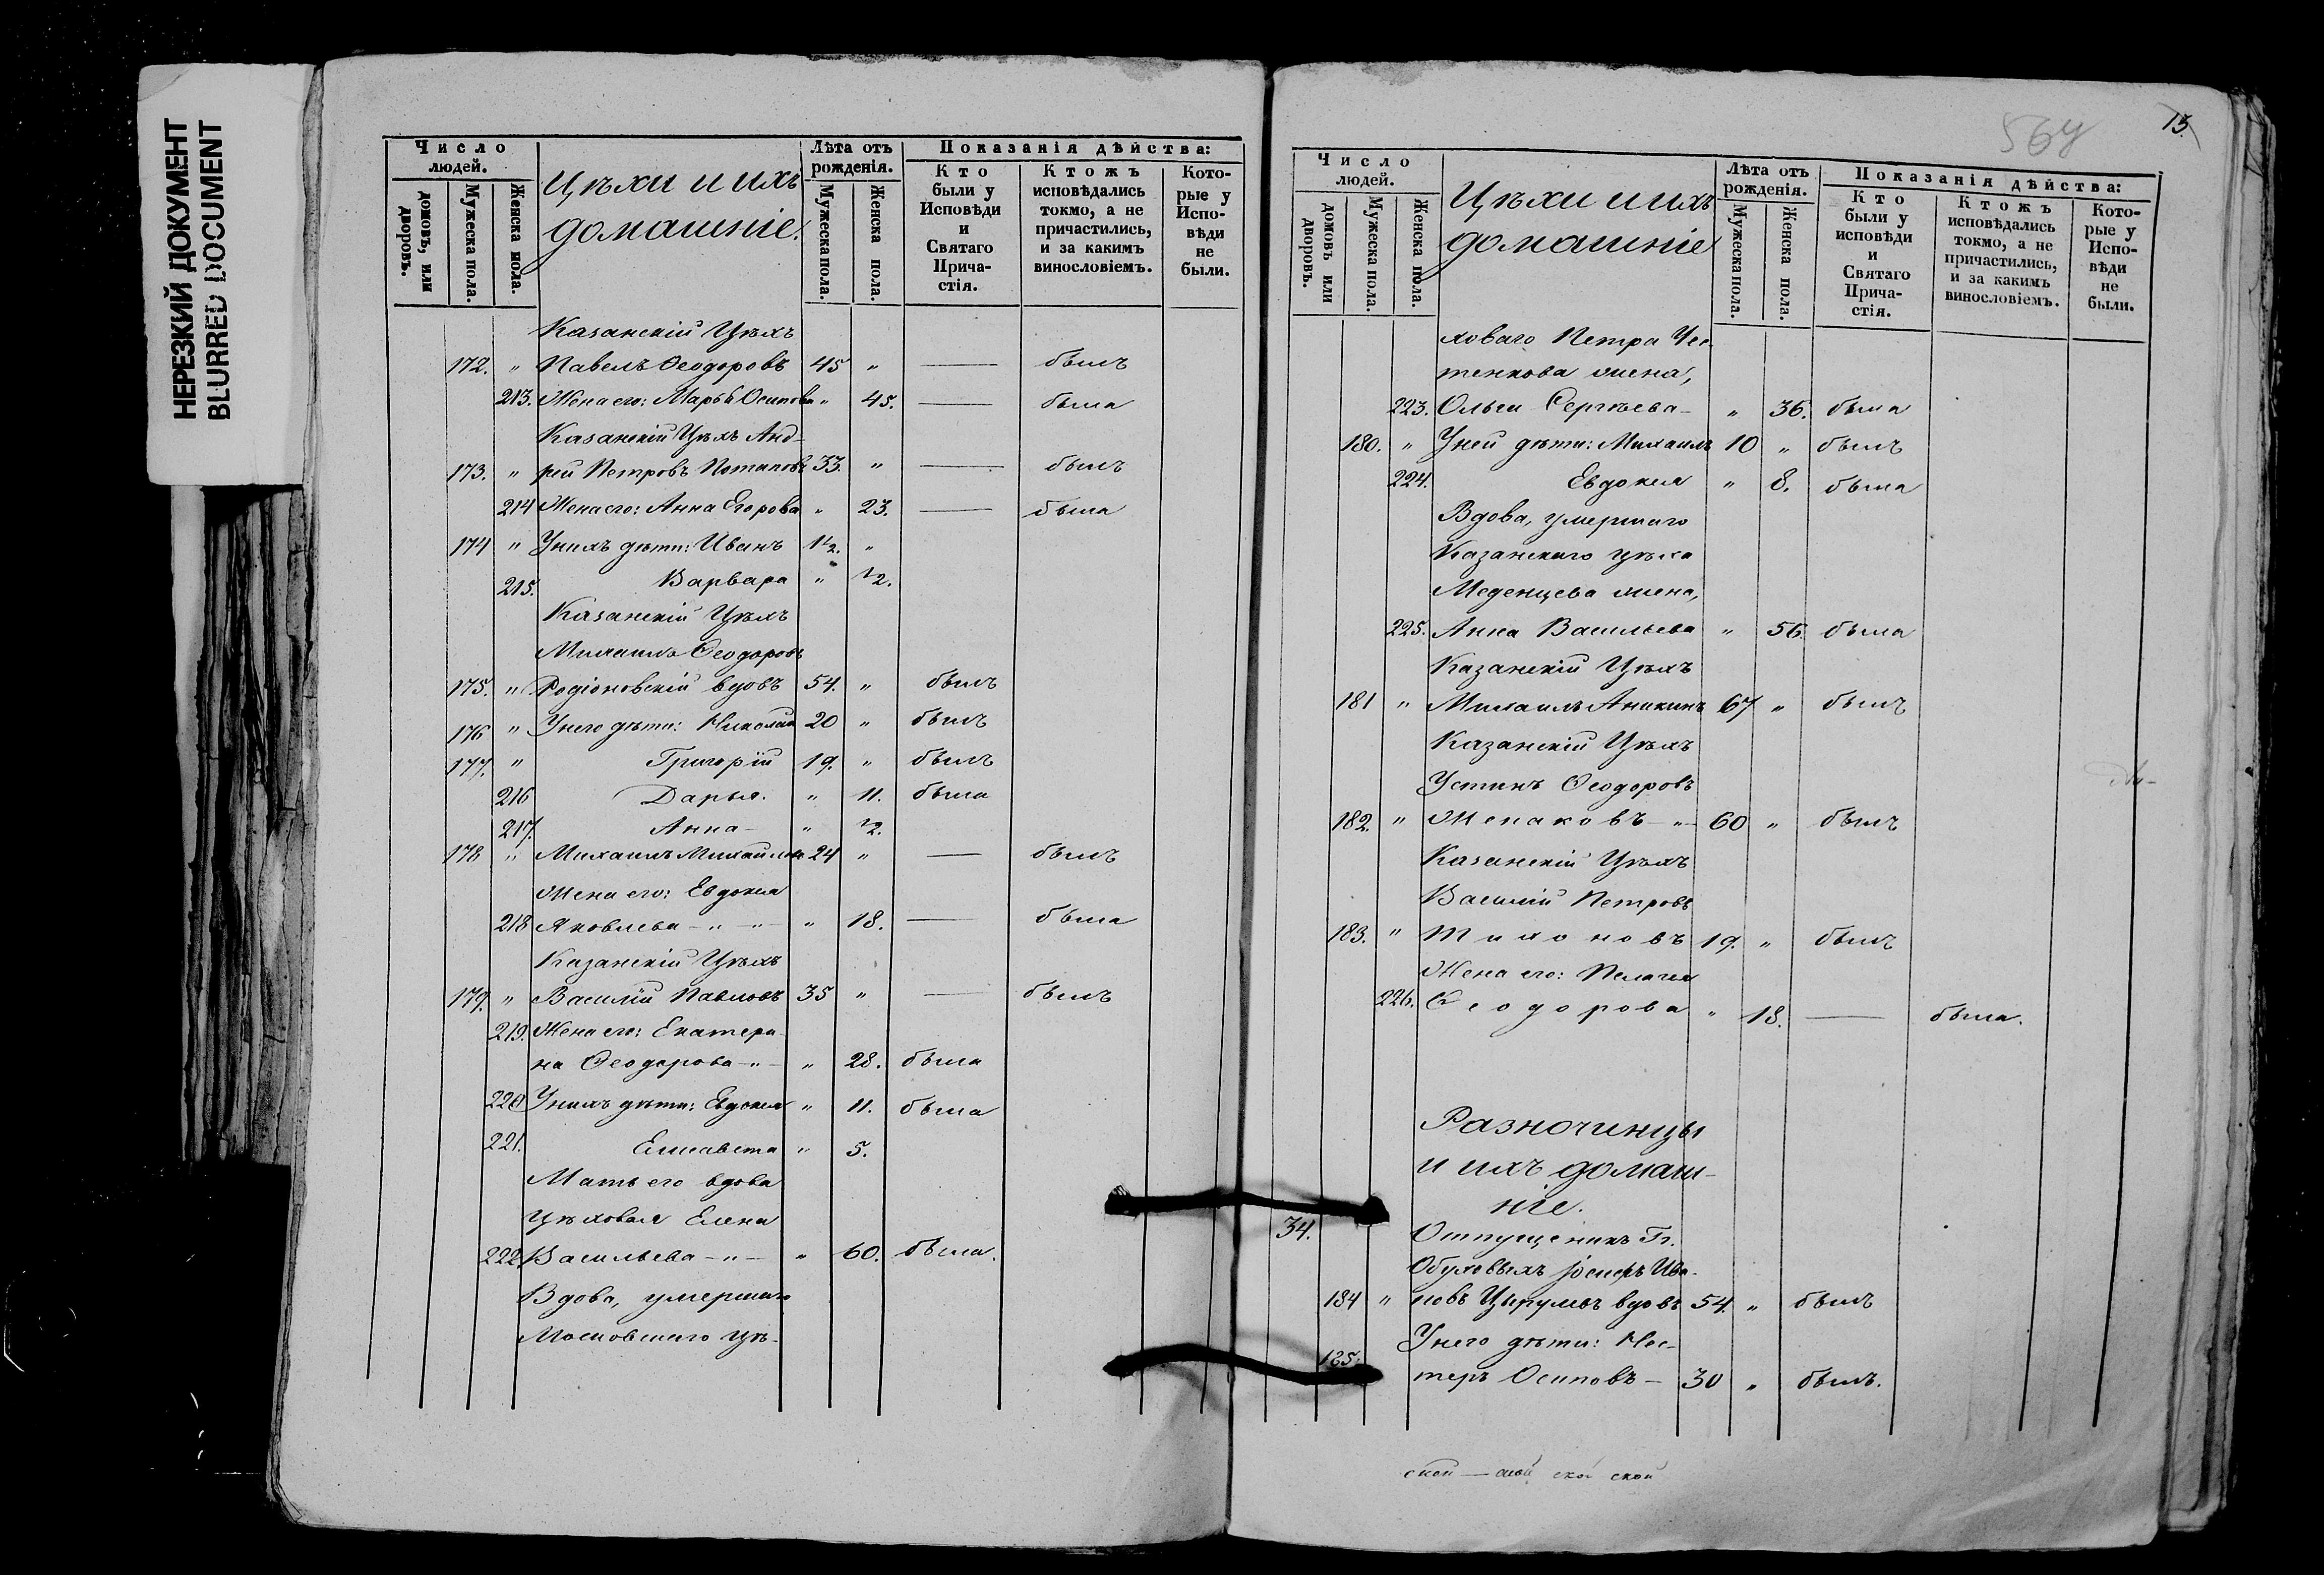 НЕРЕЗКИЙ ДОКУМЕНТ
BLURRED DOCUMENT
Число людей.
домовъ, или дворовъ.
Мужеска пола.
Женска пола.
Цѣхи и ихъ
домашніе.
Лѣта отъ рожденія.
Мужеска пола.
Женска пола.
Показанія дѣйства:
Кто были у Исповѣди и Святаго Причастія.
Ктожъ исповѣдались токмо, а не причастились, и за какимъ винословіемъ.
Которые у Исповѣди не были.
Казанскій Цѣхъ
172. " Павелъ Ѳеодоровъ 45 " — былъ
213. Жена его: Марья Осипова " 45. — была
Казанскій Цѣхъ Анд-
173. " рей Петровъ Потаповъ 33. " — былъ
214 Жена его: Анна Егорова " 23. — была
174 " У нихъ дѣти: Иванъ 1 1/2. "
215. Варвара " 1/2.
Казанскій Цѣхъ
Михаилъ Ѳеодоровъ
175. " Родіоновскій вдовъ 54. " былъ
176 " У него дѣти: Николай 20 " былъ
177. " Григорій 19. " былъ
216 Дарья. " 11. была
217. Анна - " 1/2.
178 " Михаилъ Михайловъ 24 " — былъ
Жена его: Евдокія
218 Яковлева - " - " 18. — была
Казанскій Цѣхъ
179. " Василій Павловъ 35 " — былъ
219. Жена его: Екатери-
на Ѳеодорова - " - " 28. была
220 У нихъ дѣти: Евдокія " 11. была
221. Елисавета " 5.
Мать его вдова
цѣховая Елена
222. Васильева - " - " 60. была.
Вдова, умершаго
Московскаго цѣ-
564
15.
Число людей.
домовъ или дворовъ.
Мужеска пола.
Женска пола.
Цѣхи и ихъ
домашніе
Лѣта отъ рожденія.
Мужеска пола.
Женска пола.
Показанія дѣйства:
Кто были у исповѣди и Святаго Причастія.
Ктожъ исповѣдались токмо, а не причастились, и за какимъ винословіемъ.
Которые у Исповѣди не были.
ховаго Петра Чес-
тенкова жена,
223. Ольга Сергѣева - " 36. была
180. " У ней дѣти: Михаилъ 10 " былъ
224. Евдокия " 8. была
Вдова, умершаго
Казанскаго цѣха
Меденцева жена,
225. Анна Васильева " 56. была
Казанскій Цѣхъ
181 " Михаилъ Аникинъ 67 " былъ
Казанскій Цѣхъ
Устинъ Ѳеодоровъ
182. " Женаковъ - " - 60 " былъ
Казанскій Цѣхъ
Василій Петровъ
183. " Тихоновъ 19. " былъ
Жена его: Пелагея
226. Ѳеодорова " 18. — была.
Разночинцы
и ихъ домаш-
ніе.
34. Отпущеникъ Гг.
Обуховыхъ Ива-
184 " новъ вдовъ 54. " былъ
У него дѣти: Нес-
185. теръ Осиповъ - 30 " былъ.
ской — ской ской